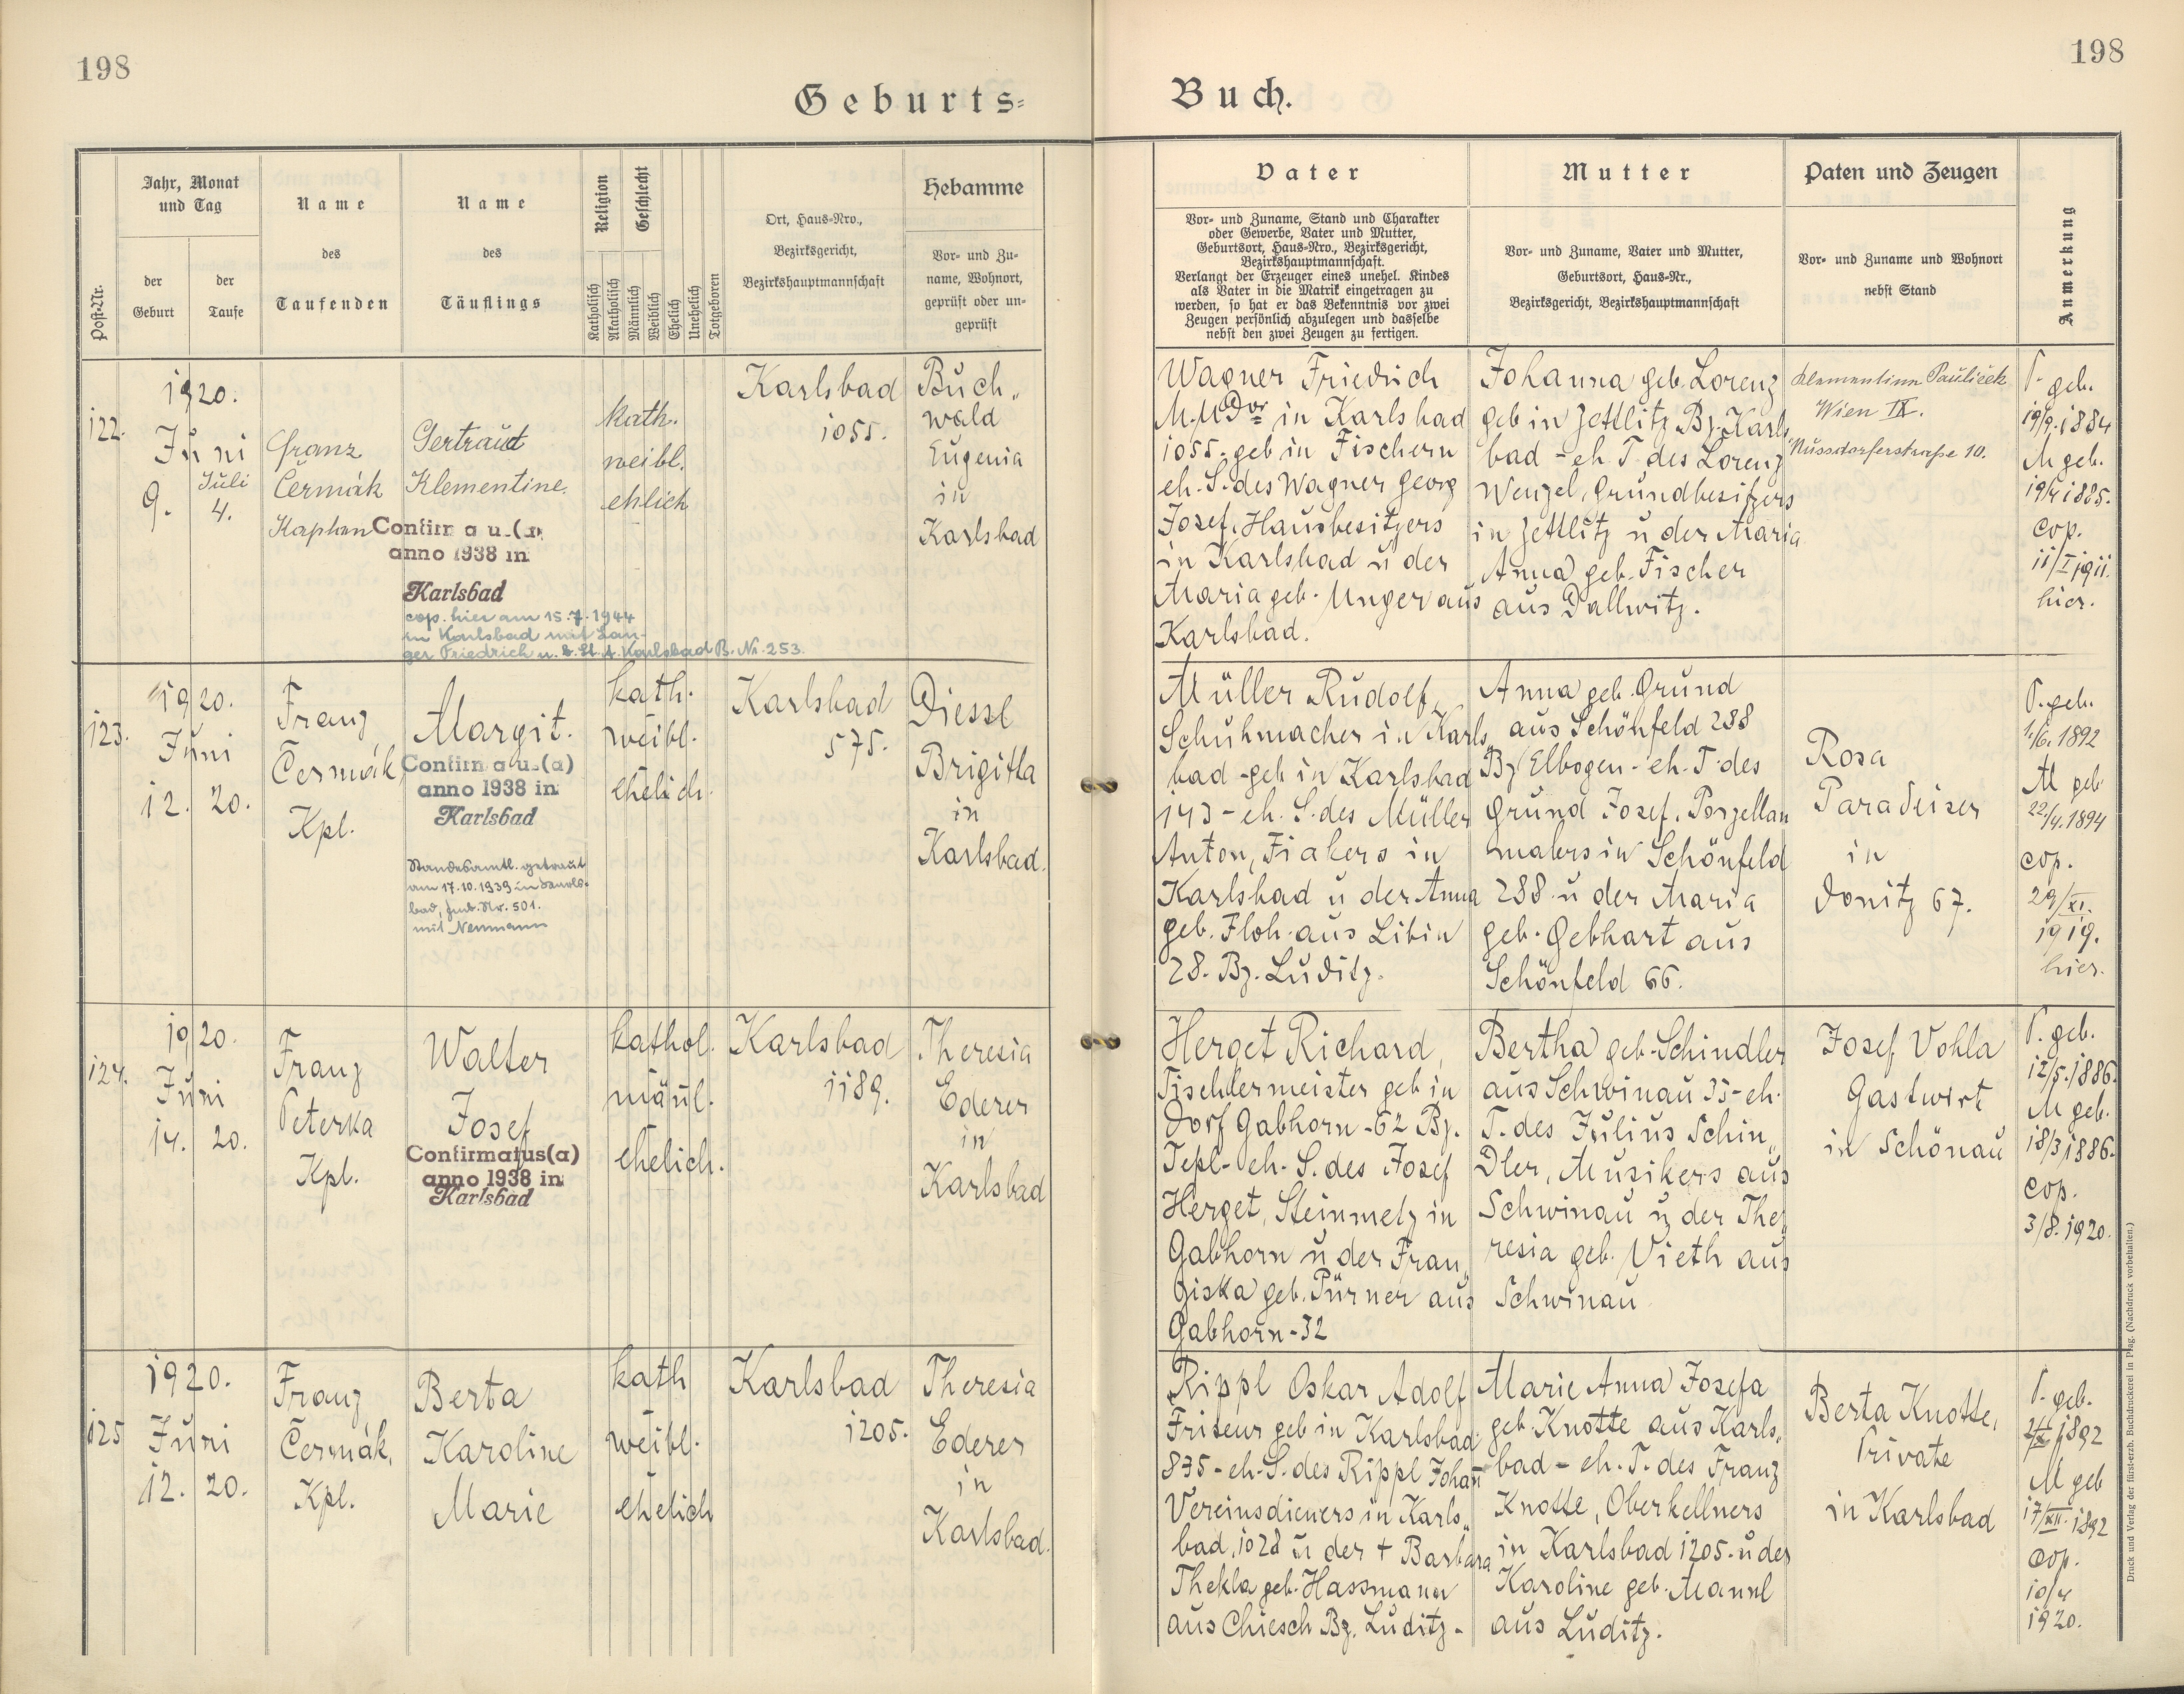 198
198
Geburts=
Buch.
Post-Nr.
Jahr, Monat
und Tag
der
Geburt
der
Taufe
Name
des
Taufenden
Name
des
Täuflings
Religion
Geschlecht
Katholisch
Akatholisch
Männlich
Weiblich
Ehelich
Unehelich
Totgeboren
Ort, Haus-Nro.,
Bezirksgericht,
Bezirkshauptmannschaft
Hebamme
Vor- und Zu-
name, Wohnort,
geprüft oder un-
geprüft
Vater
Vor- und Zuname, Stand und Charakter
oder Gewerbe, Vater und Mutter,
Geburtsort, Haus-Nro., Bezirksgericht,
Bezirkshauptmannschaft.
Verlangt der Erzeuger eines unehel. Kindes
als Vater in die Matrik eingetragen zu
werden, so hat er das Bekenntnis vor zwei
Zeugen persönlich abzulegen und dasselbe
nebst den zwei Zeugen zu fertigen.
Mutter
Vor- und Zuname, Vater und Mutter,
Geburtsort, Haus-Nr.,
Bezirksgericht, Bezirkshauptmannschaft
Paten und Zeugen
Vor- und Zuname und Wohnort
nebst Stand
Anmerkung
122.
1920.
Juni
Juli
9. 4.
Franz
Čermák
Kaplan
Gertraud
Klementine.
Confirm a u (a)
anno 1938 in
Karlsbad
cop. hier am 15.7.1944
in Karlsbad mit Lan-
ger Friedrich u. b. St. A. Karlsbad B. Nr. 253.
kath.
weibl.
ehlich
Karlsbad
1055.
Buch„
wald
Eugenia
in
Karlsbad
Wagner Friedrich
M.U.Dor in Karlsbad
1055. geb in Fischern
eh. S. des Wagner Georg
Josef, Hausbesitzers
in Karlsbad u der
Maria geb. Unger aus
Karlsbad.
Johanna geb. Lorenz
geb in Zettlitz Bz. Karls„
bad - eh T des Lorenz
Wenzel, Grundbesitzers
in Zettlitz u der Maria
Anna geb. Fischer
aus Dallwitz.
Klementine Pauliček
Wien IX.
Nussdorferstraße 10.
V. geb.
19/9. 1884
M geb.
19/4 1885.
cop.
11/I 1911.
hier.
123.
1920.
Juni
12. 20.
Franz
Čermák,
Kpl.
Margit.
Confirm a us (a)
anno 1938 in
Karlsbad
Standesamtl. getraut
am 17.10.1939 in Karls-
bad, Jud. Nr. 501.
mit Neumann
kath.
weibl.
ehelich.
Karlsbad
575.
Diessl
Brigitta
in
Karlsbad.
Müller Rudolf,
Schuhmacher in Karls„
bad - geb in Karlsbad
143 - eh. S. des Müller
Anton, Fiakers in
Karlsbad u der Anna
geb. Floh aus Libin
28. Bz. Luditz.
Anna geb. Grund
aus Schönfeld 288
Bz Elbogen - eh. T. des
Grund Josef, Porzellan
malers in Schönfeld
288 u der Maria
geb. Gebhart aus
Schönfeld 66.
Rosa
Paradeiser
in
Donitz 67.
V. geb.
1./6. 1892
M geb
22./4. 1894
cop.
29/XI.
1919.
hier.
124.
1920.
Juni
14. 20.
Franz
Peterka
Kpl.
Walter
Josef
Confirmatus(a)
anno 1938 in
Karlsbad
kathol.
mänl.
ehelich.
Karlsbad
1189.
Theresia
Ederer
in
Karlsbad
Herget Richard,
Tischlermeister geb in
Dorf Gabhorn - 62 Bz.
Tepl - eh. S. des Josef
Herget, Steinmetz in
Gabhorn u der Fran„
ziska geb. Pürner aus
Gabhorn - 32
Bertha geb. Schindler
aus Schwinau 35 - eh.
T. des Julius Schin„
dler, Musikers aus
Schwinau u der The„
resia geb. Vieth aus
Schwinau
Josef Vohla
Gastwirt
in Schönau
V. geb.
12/5. 1886.
M geb.
18/3 1886.
cop.
3/8. 1920.
125
1920.
Juni
12. 20.
Franz
Čermák,
Kpl.
Berta
Karoline
Marie
kath
weibl.
ehelich
Karlsbad
1205.
Theresia
Ederer
in
Karlsbad.
Rippl Oskar Adolf
Friseur geb in Karlsbad
835 - eh. S. des Rippl Johan̄
Vereinsdieners in Karls„
bad, 1028 u der † Barbara
Thekla geb. Hassmann
aus Chiesch Bz. Luditz -
Marie Anna Josefa
geb Knotte aus Karls„
bad - eh. T. des Franz
Knotte, Oberkellners
in Karlsbad 1205. u der
Karoline geb. Mannl
aus Luditz.
Berta Knotte,
Private
in Karlsbad
V. geb.
1892
M geb
17/XII. 1892
cop.
10/4
1920.
Druck und Verlag der fürst-erzb. Buchdruckerei in Prag. (Nachdruck vorbehalten.)